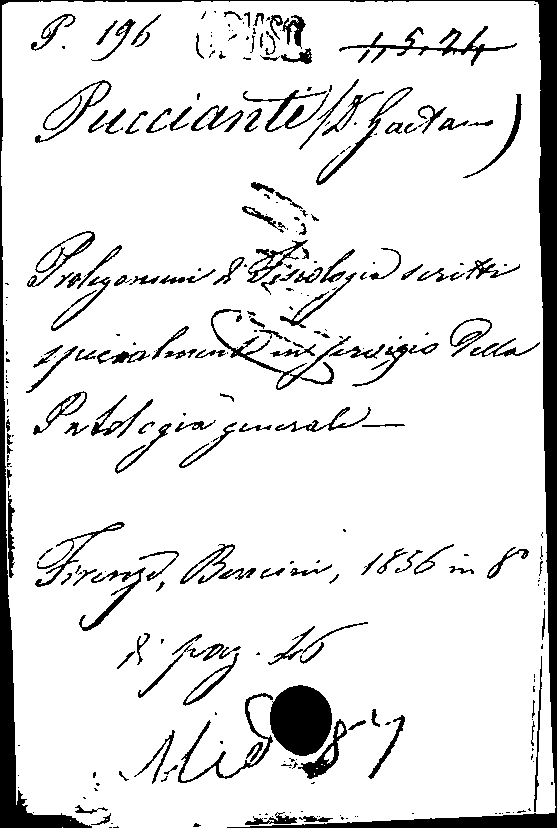 P. 196 OPUSC. 1,5,24
Puccianti (D. Gaetano)
Prolegomeni di Fisiologia scritti
specialmente in servigio della
Patologia generale —
Firenze, 1856 in 8°
di pag. 16